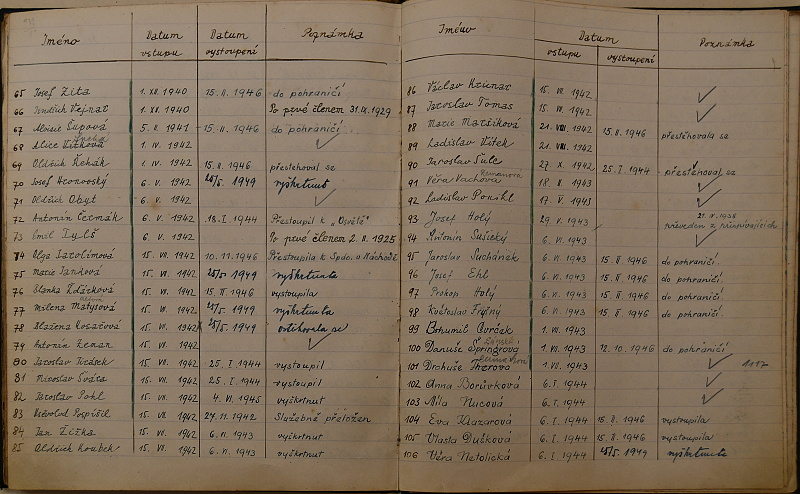 Jméno Datum vstupu Datum vystoupení Poznámka
65 Josef Zita 1. XII. 1940 15. II. 1946 do pohraničí
66 Jindřich Vejnar 1. XII. 1940 Po prvé členem 31. IX. 1929
67 Šupová 5. II. 1941 15. II. 1946 do pohraničí
68 Alice Vítková 1. IV. 1942
69 Oldřich Řehák 1. IV. 1942 15. II. 1946 přestěhoval se
70 Josef Hronovský 6. V. 1942 25/5 1949 vyškrtnut
71 Oldřich Obyt 6. V. 1942
72 Antonín Čermák 6. V. 1942 18. I. 1944 Přestoupil k „Osvětě"
73 Emil Tylš 6. V. 1942 Po prvé členem 2. II. 1925
74 Olga Šatolímová 15. VII. 1942 10. 11. 1946 Přestoupila k Spolc. v Náchodě
75 Marie Janková 15. VII. 1942 25/5 1949 vyškrtnuta
76 Blanka Žďárková 15. VII. 1942 15. II. 1946 vystoupila
77 Milena Matysová 15. VII. 1942 25/5 1949 vyškrtnuta
78 Blažena Kosařová 15. VII. 1942 25/5 1949 odstěhovala se
79 Antonín Zeman 15. VII. 1942
80 Jaroslav Jirásek 15. VII. 1942 25. I. 1944 vystoupil
81 Miroslav Šváta 15. VII. 1942 25. I. 1944 vystoupil
82 Jaroslav Pohl 15. VII. 1942 4. VI. 1945 vyškrtnut
83 Rostvolod Pospíšil 15. VII. 1942 27. 11. 1942 Služebně přeložen
84 Jan Žižka 15. VII. 1942 6. VI. 1943 vyškrtnut
85 Oldřich Koubek 15. VII. 1942 6. VI. 1943 vyškrtnut
Jméno Datum vstupu vystoupení Poznámka
86 Václav 15. VII. 1942
87 Jaroslav Tomas 15. VII. 1942
88 Marie Maršíková 21. VIII. 1942 15. II. 1946 přestěhovala se
89 Ladislav Vítek 21. VIII. 1942
90 Jaroslav Šulc 27. X. 1942 25. I. 1944 přestěhoval se
91 Věra Vachová 18. II. 1943
92 Ladislav Ponikl 17. V. 1943
93 Josef Holý 29. V. 1943 převeden z přispívajících
94 Antonín Sušický 6. VI. 1943
95 Jaroslav Suchánek 6. VI. 1943 15. II. 1946 do pohraničí
96 Josef Ehl 6. VI. 1943 15. II. 1946 do pohraničí
97 Prokop Holý 6. VI. 1943 15. II. 1946 do pohraničí
98 Květoslav Frýzný 6. VI. 1943 15. II. 1946 do pohraničí
99 Bohumil Cvrček 1. VII. 1943
100 Danuše Springrová 1. VII. 1943 12. 10. 1946 do pohraničí
101 Drahuše Therová 1. VII. 1943
102 Anna Borůvková 6. I. 1944
103 Míla Nucová 6. I. 1944
104 Eva Klazarová 6. I. 1944 15. II. 1946 vystoupila
105 Vlasta Dušková 6. I. 1944 15. II. 1946 vystoupila
106 Věra Netolická 6. I. 1944 25/5 1949 vyškrtnuta